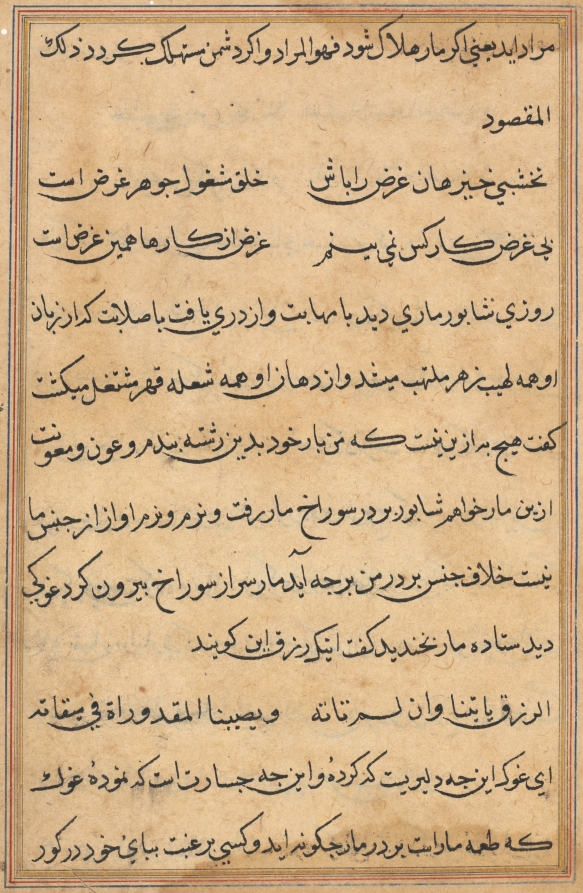 مراد اید یعنی اکر مار هلاک شود فهو المراد و اکر دشمن مستهلک کردد ذلک
المقصود
نخشبی خیز هان غرض را باش خلق مشغول جوهر غرض است
بی غرض کار کس نمی بینم غرض از کارها همین غرض است
روزی شابور ماری دید با مهابت و از دری یافت با صلابت که از زبان
او همه لهیب زهر ملتهب میشد و از دهان او همه شعله قهر مشتغل میکشت
کفت هیچ به ازین نیست که من بار خود بدین رشته بندم و عون و معونت
ازین مار خواهم شابور بر در سوراخ مار رفت و نرم و نرم اواز از جنس ما
نیست خلاف جنس بر در من برجه آید مار سر از سوراخ بیرون کرد غوکی
دید ستاده مار بخندید کفت اینک رزق این کویند
الرزق یاتینا وان لم ناته و یصیبنا المقدور اة فی میقاته
ای غوک این جه دلیریت که کردهٔ و این جه جسارت است که نمودهٔ غوک
که طعمه مار است بر در مار جکونه اید و کسی برغبت ببای خود در کور